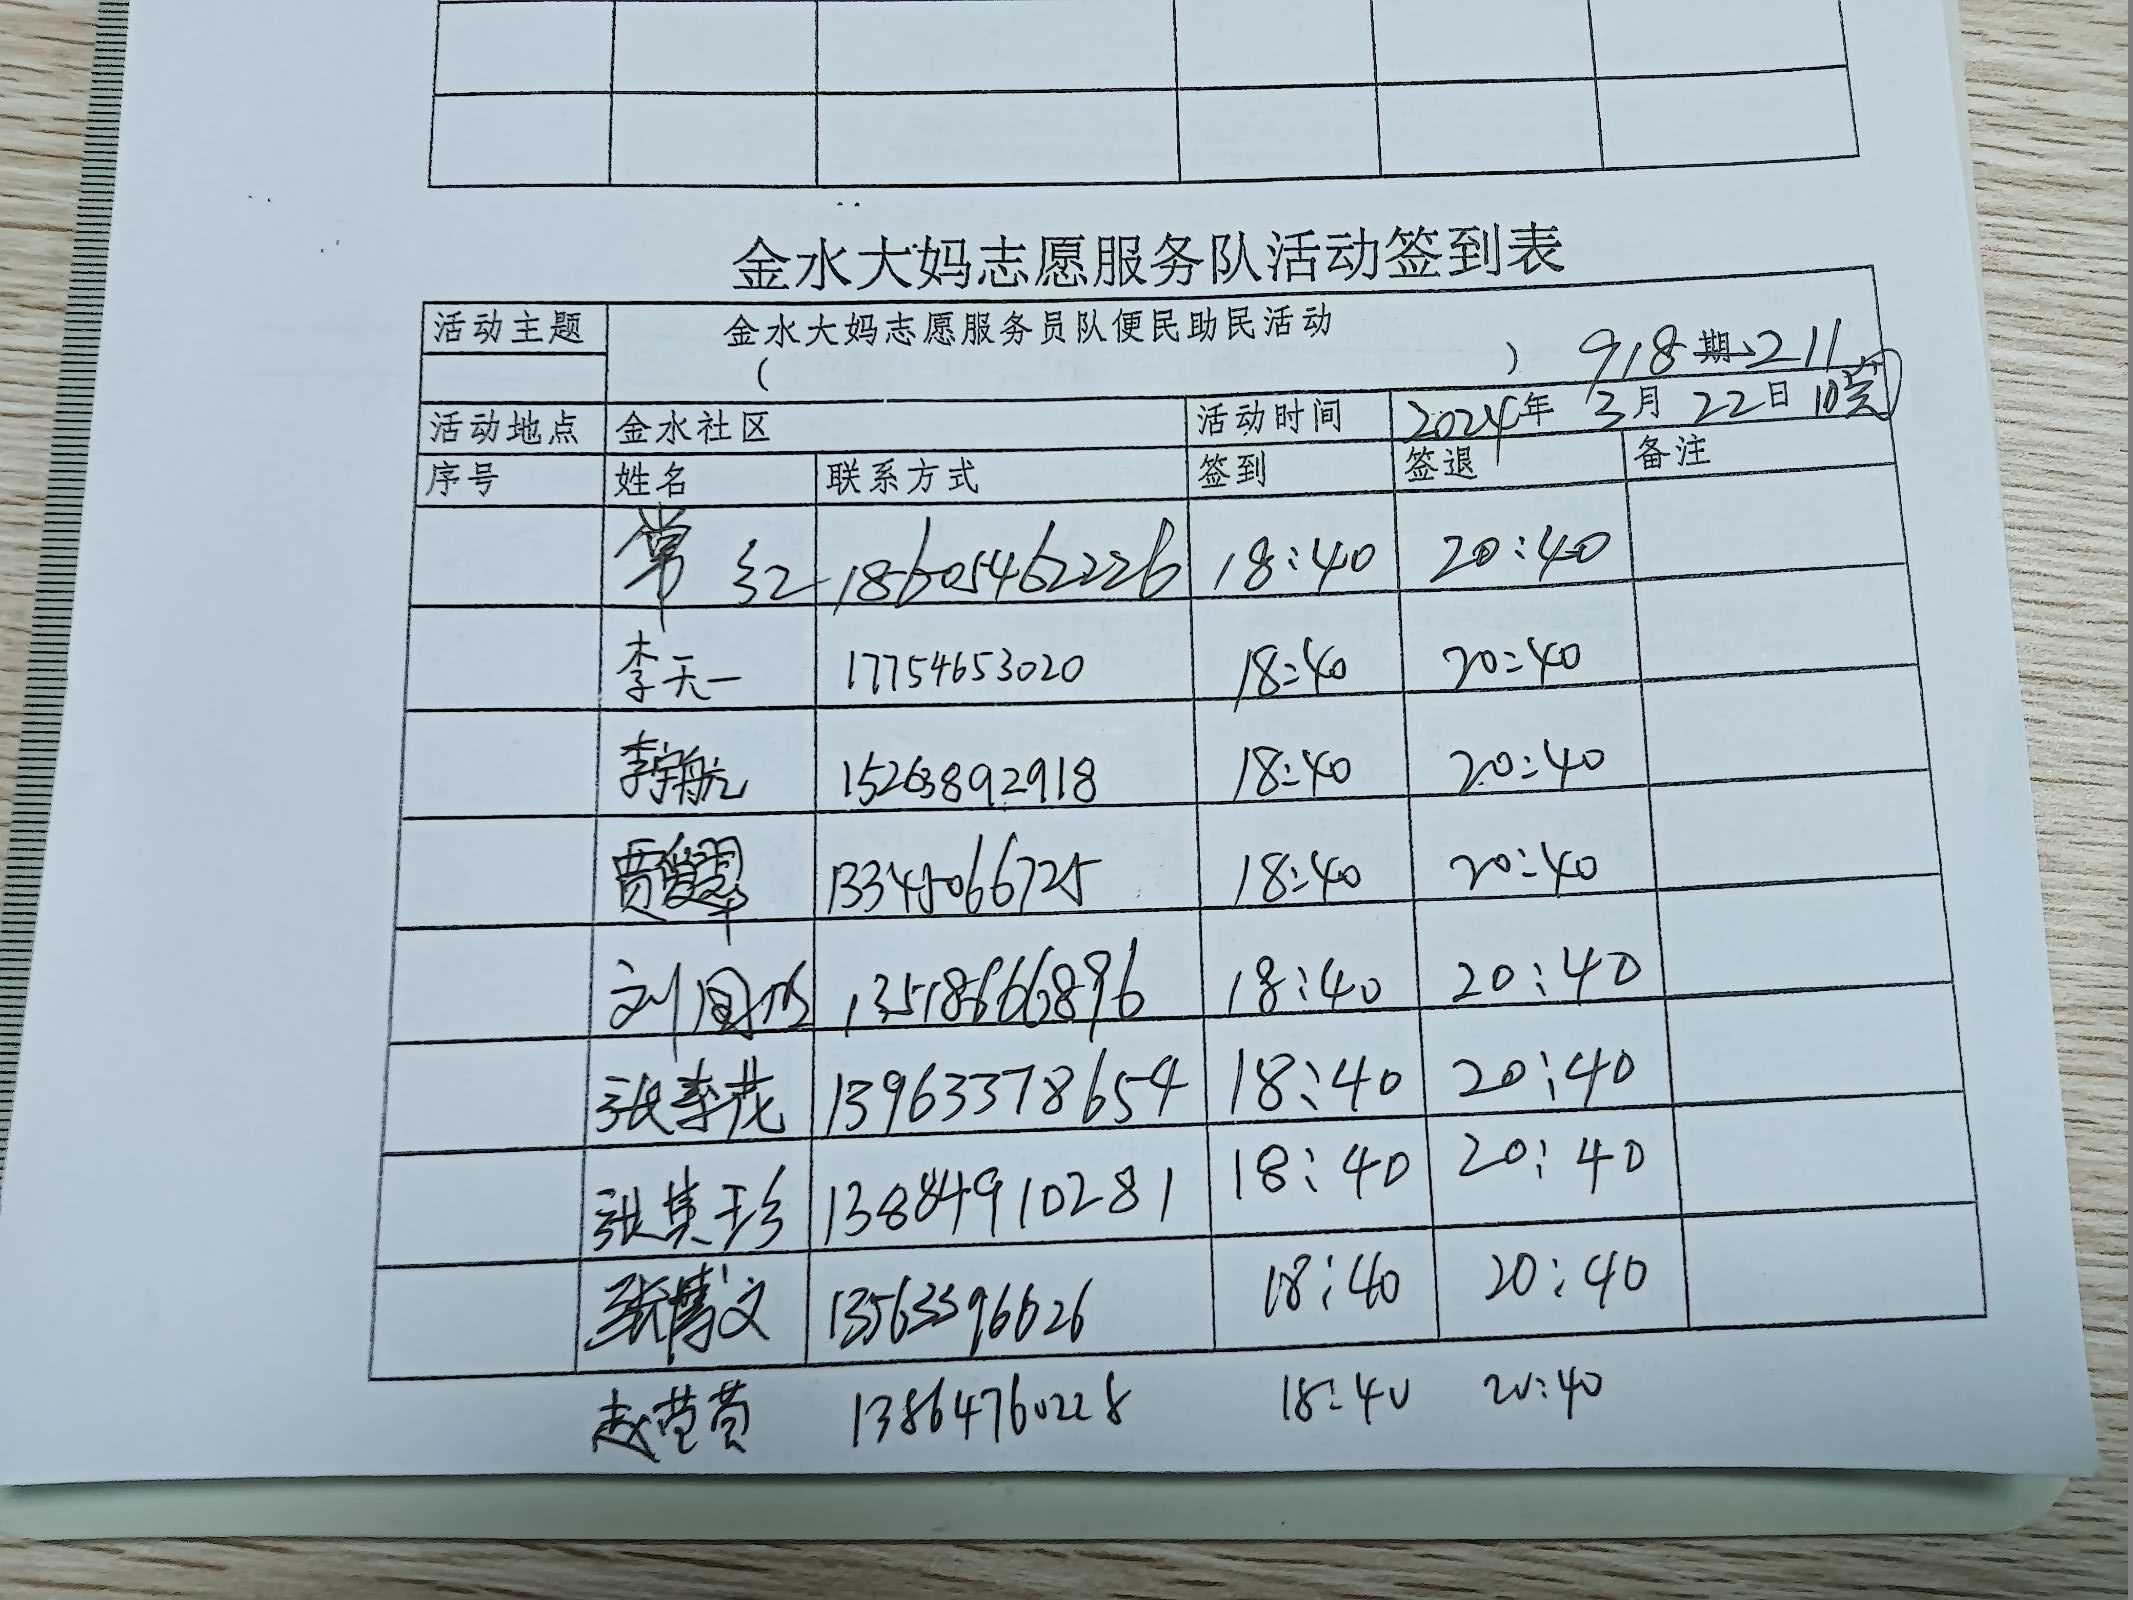 金水大妈志愿服务队活动签到表
活动主题 金水大妈志愿服务员队便民助民活动
( ) 918期、211
活动地点 金水社区 活动时间 2024年 3月 22日
序号 姓名 联系方式 签到 签退 备注
常红 18605462226 18:40 20:40
李天一 17754653020 18:40 20:40
李宇航 15263892918 18:40 20:40
贾爱翠 13345066725 18:40 20:40
刘 13518666896 18:40 20:40
张季花 13963378654 18:40 20:40
张其珍 13884910281 18:40 20:40
张博文 13563396626 18:40 20:40
赵 13864760228 18:40 20:40